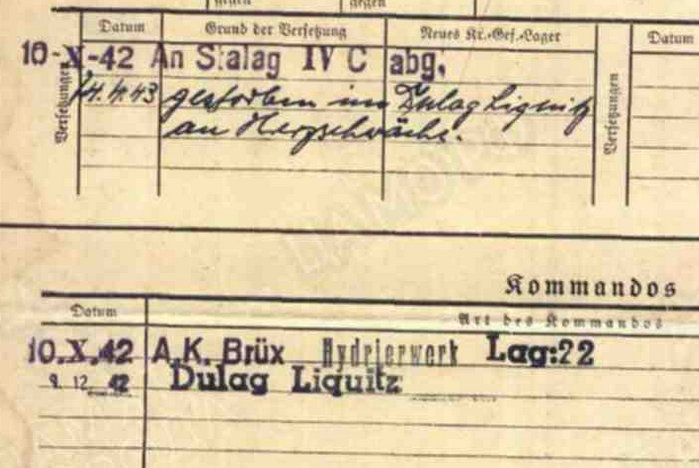 gegen gegen
Datum Grund der Versetzung Neues Kr.-Gef.-Lager Datum
10-X-42 An Stalag IV C abg.
Versetzungen 14.4.43 gestorben im Dulag Liqnitz Versetzungen
an Herzschwäche.
Kommandos
Datum Art des Kommandos
10.X.42 A.K. Brüx Hydrierwerk Lag:22
9. 12. 42 Dulag Liquitz